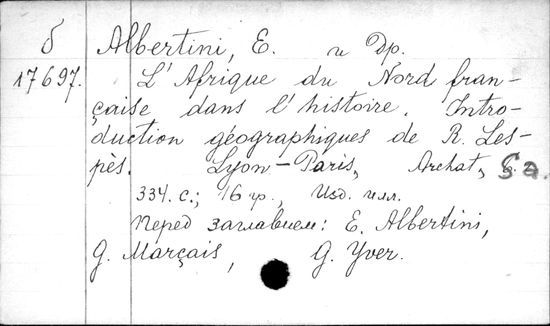 б Albertini, E. и др.
17697. L'Afrique du Nord fran-
çaise dans l'histoire. Intro-
duction géographiques de R. Les-
pès. Lyon-Paris, Archat, S. a.
334. с.; 16 гр., Изд. илл.
Перед заглавием: E. Albertini,
G. Marçais, G. Yver.